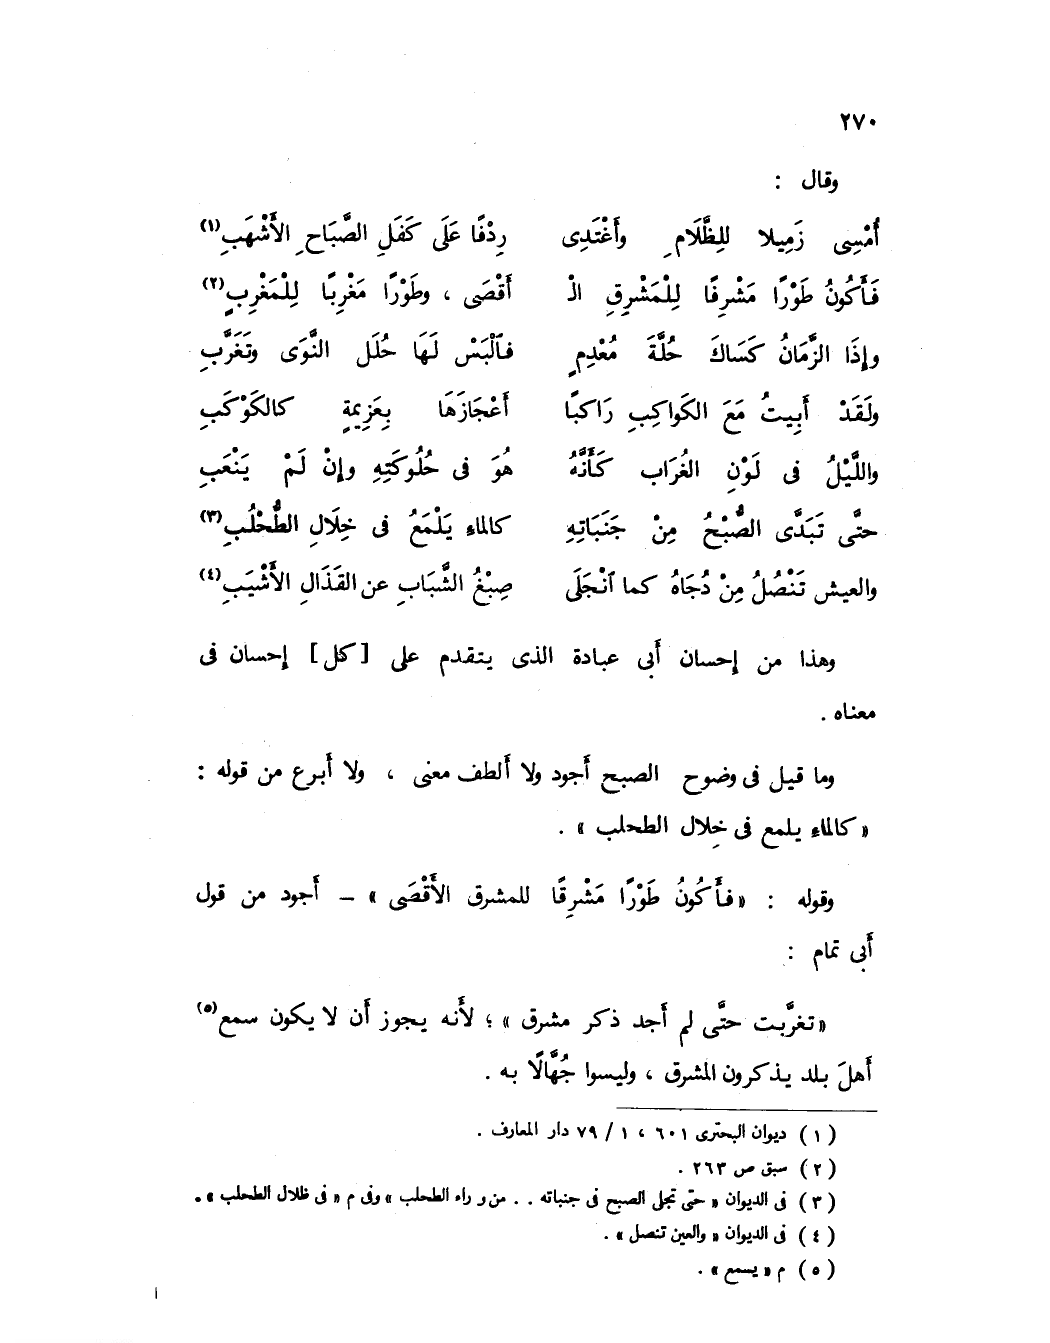 ٢٧٠
وقال :
أُمْسِى زَمِيلا للِظَّلَامِ وأَغْتَدِى رِدْفًا عَلَى كَفَلِ الصَّبَاحِ الأَشْهَبِ(١)
فَأَكُونُ طَوْرًا مَشْرِقًا لِلْمَشْرِقِ الْـ أَقْصَى ، وطَوْرًا مَغْرِبًا لِلْمَغْرِبِ(٢)
وإِذَا الزَّمَانُ كَسَاكَ حُلَّةَ مُعْدِمٍ فَالْبَسْ لَهَا حُلَل النَّوَى وتَغَرَّبِ
ولَقَدْ أَبِيتُ مَعَ الكَواكِبِ رَاكبًا أَعْجَازَهَا بِعَزِيمةٍ كالكَوْكَبِ
واللَّيْلُ فى لَوْنِ الغُرَاب كَأَنَّهُ هُوَ فى حُلُوكَتِهِ وإِنْ لَمْ يَنْعَبِ
حتَّى تَبَدَّى الصُّبْحُ مِنْ جَنَبَاتِهِ كالماءِ يَلْمَعُ فى خِلَالِ الطُّحْلُبِ(٣)
والعيش تَنْصُلُ مِنْ دُجَاهُ كما اَنْجَلَى صِبْغُ الشَّبَابِ عن القَذَالِ الأَشْيَبِ(٤)
وهذا من إحسان أَبى عبادة الذى يتقدم على [كل] إحسان فى
معناه .
وما قيل فى وضوح الصبح أَجود ولا أَلطف معنى ، ولا أَبرع من قوله :
« كالماءِ يلمع فى خِلال الطحلب » .
وقوله : «فأَكُونُ طَوْرًا مَشْرِقًا للمشرق الأَقْصَى » – أَجود من قول
أَبى تمام :
«تغرَّبت حتَّى لم أَجد ذكر مشرق » ؛ لأَنه يجوز أَن لا يكون سمع(٥)
أَهلَ بلد يذكرون المشرق ، وليسوا جُهَّالًا به .
(١) ديوان البحترى ٦٠١ ، ١ / ٧٩ دار المعارف .
(٢) سبق ص ٢٦٣ .
(٣) فى الديوان « حتى تجلى الصبح فى جنباته . . من وراء الطحلب » وفى م « فى ظلال الطحلب » .
(٤) فى الديوان « والعين تنصل » .
(٥) م « يسمع » .